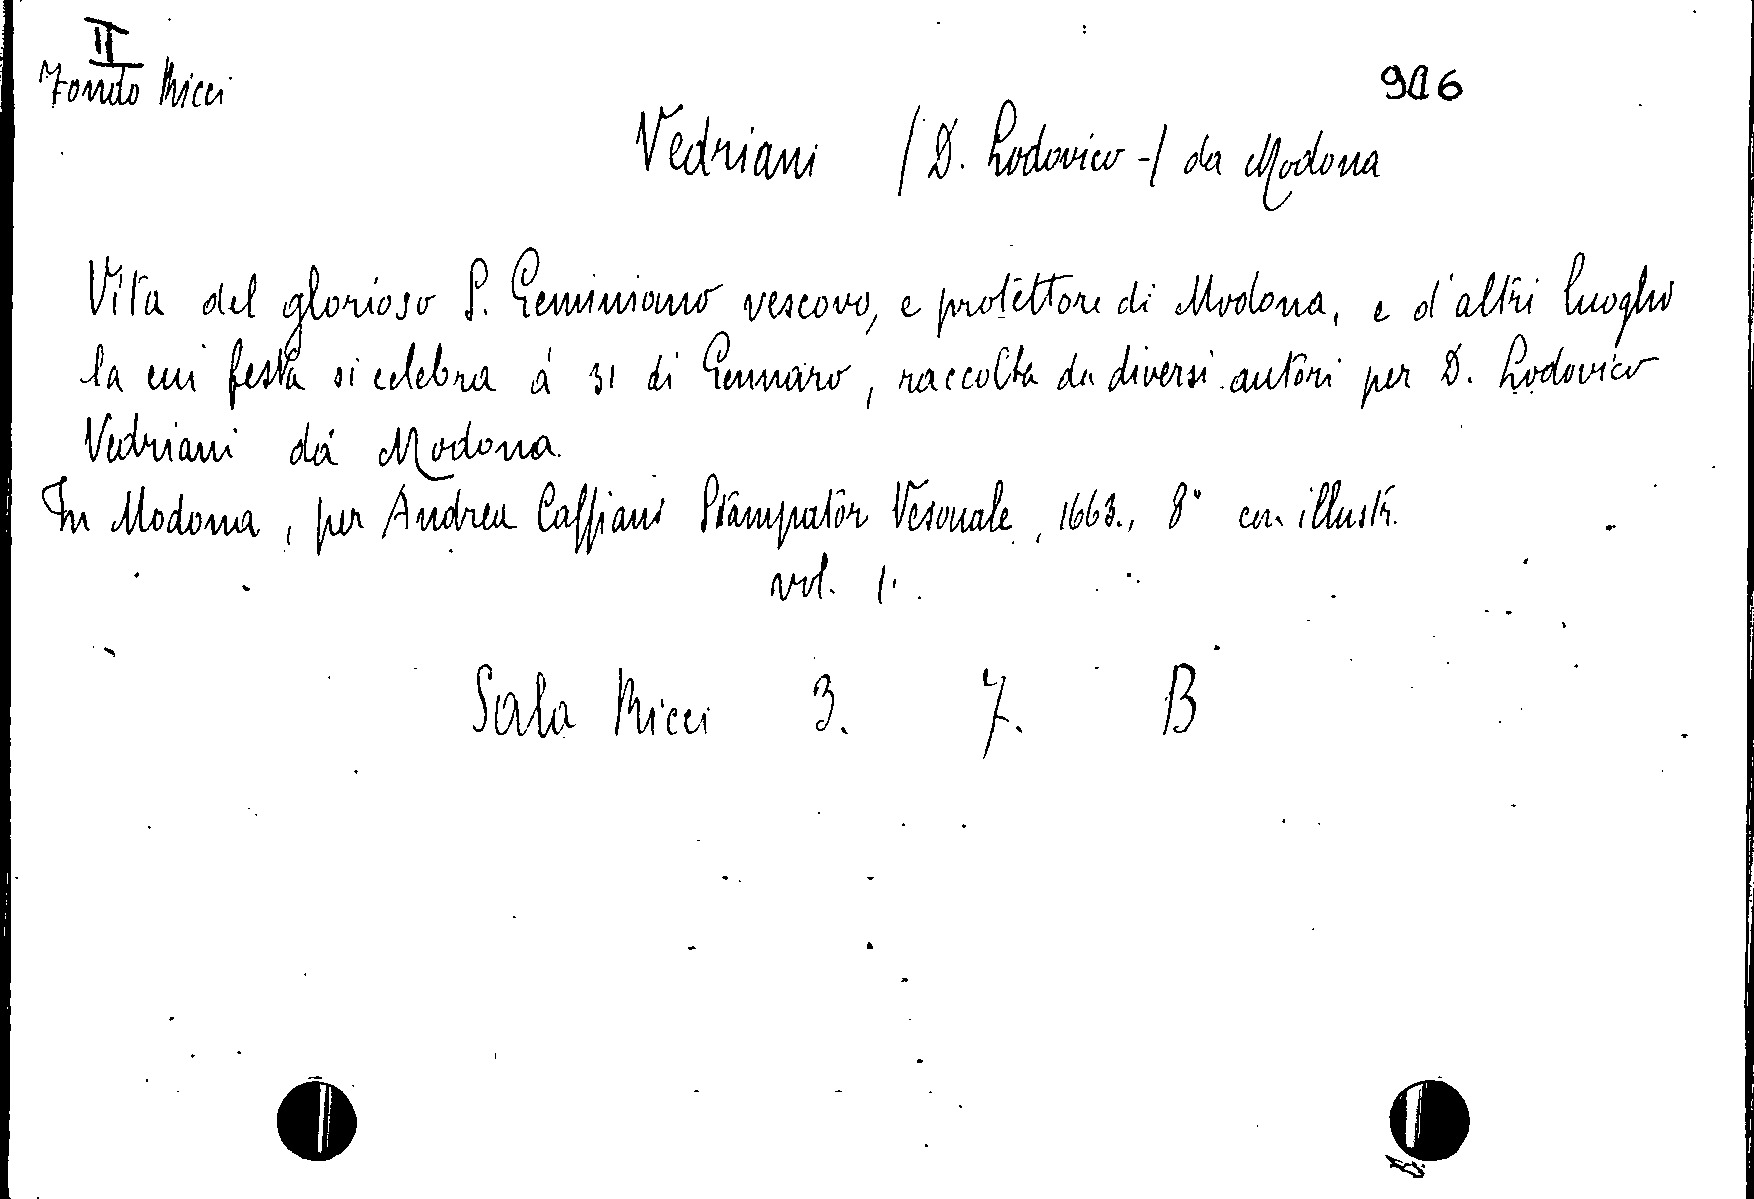 II
Fondo Ricci
916
Vedriani / D. Lodovico -/ da Modona
Vita del glorioso S. Geminiano vescovo, e protettore di Modona, e d'altri luoghi
la cui festa si celebra á 31 di Gennaro, raccolta da diversi autori per D. Lodovico
Vedriani dá Modona.
In Modona, per Andrea Cassiani Stampator Vesouale, 1663., 8° con illustr.
vol. 1.
Sala Ricci 3. 7. B